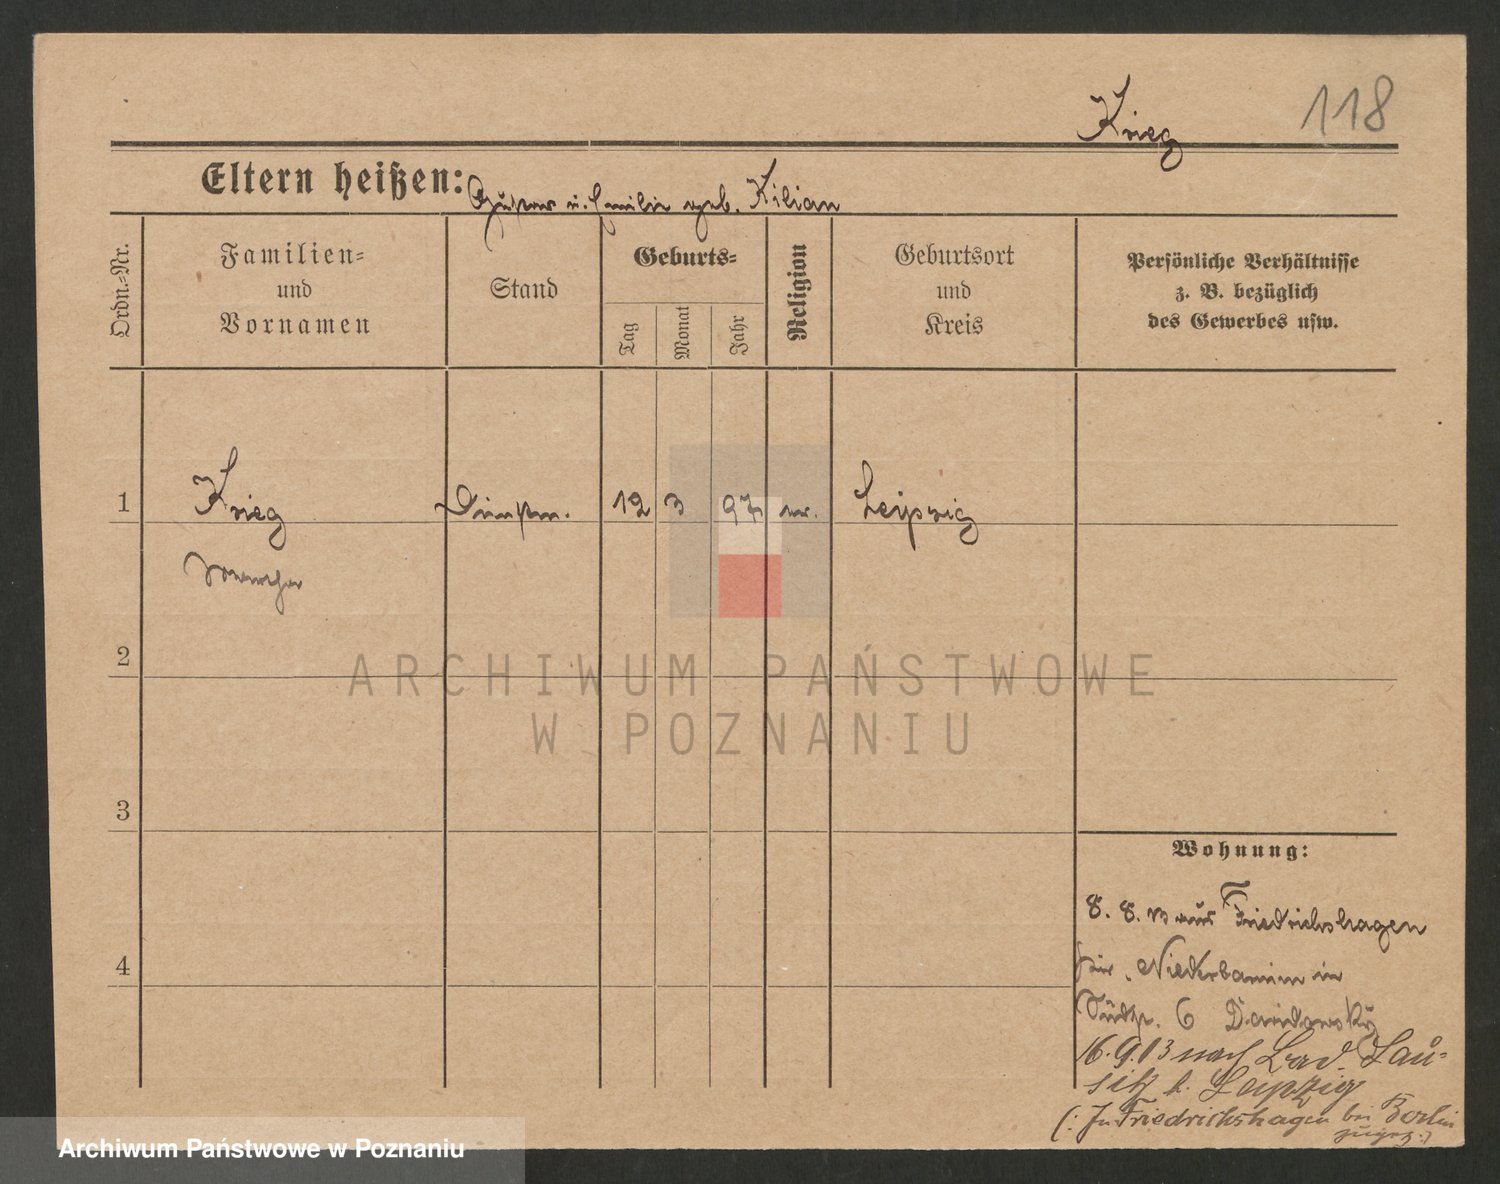 Krieg
118
Eltern heißen: Gustav u. Emilie geb. Kilian
Ordn.-Nr.
Familien-
und
Vornamen
Stand
Geburts-
Tag
Monat
Jahr
Religion
Geburtsort
und
Kreis
Persönliche Verhältnisse
z. B. bezüglich
des Gewerbes usw.
1
Krieg
12
3
97
ev.
Leipzig
2
3
4
Wohnung:
8. 8. 13 aus Friedrichshagen
Niederbarnim in
6
16.9.13 nach Bad Lau-
sick b. Leipzig
(: In Friedrichshagen bei Berlin
:)
ARCHIWUM PAŃSTWOWE
W POZNANIU
Archiwum Państwowe w Poznaniu